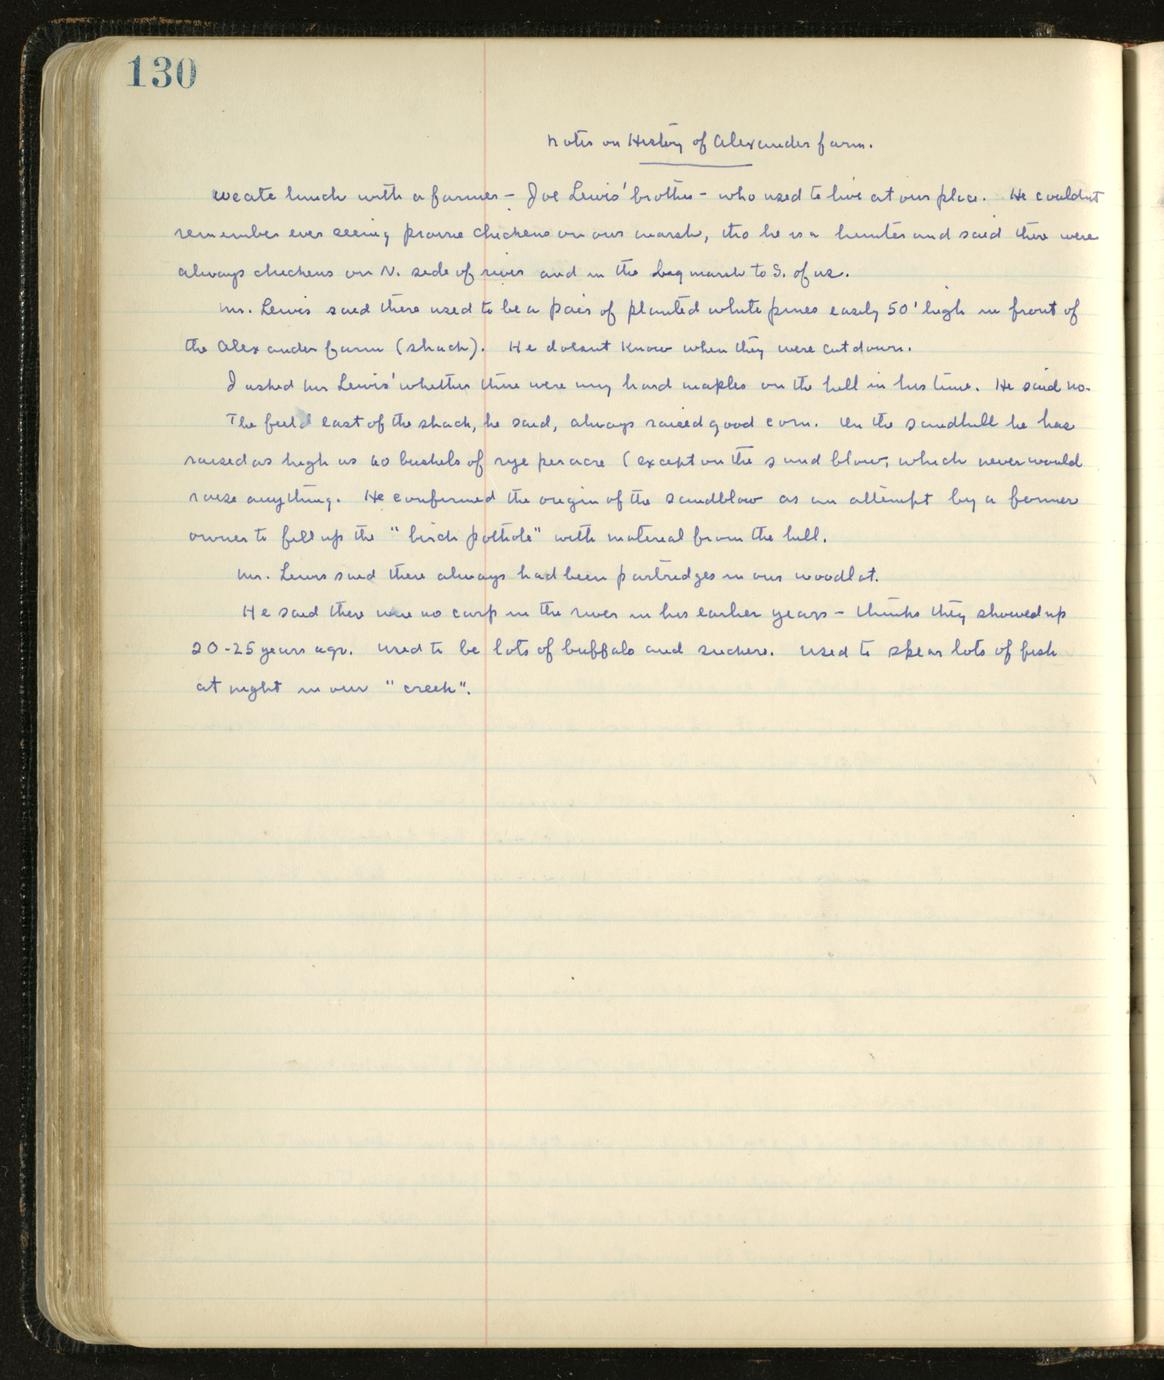 130
Notes on History of Alexander farm.
We ate lunch with a farmer - Joe Lewis' brother - who used to live at our place. He couldn't
remember ever seeing prairie chickens on our marsh, tho he is a hunter and said there were
always chickens on N. side of river and in the big marsh to S. of us.
Mr. Lewis said there used to be a pair of planted white pines easily 50' high in front of
the Alexander farm (shack). He doesnt know when they were cut down.
I asked Mr Lewis' whether there were any hard maples on the hill in his time. He said no.
The field east of the shack, he said, always raised good corn. On the sandhill he has
raised as high as 40 bushels of rye per acre (except on the sand blow, which never would
raise anything. He confirmed the origin of the sandblow as an attempt by a former
owner to fill up the "birch pothole" with material from the hill.
Mr. Lewis said there always had been partridges in our woodlot.
He said there were no carp in the river in his earlier years - thinks they showed up
20-25 years ago. Used to be lots of buffalo and suckers. Used to spear lots of fish
at night in our "creek".